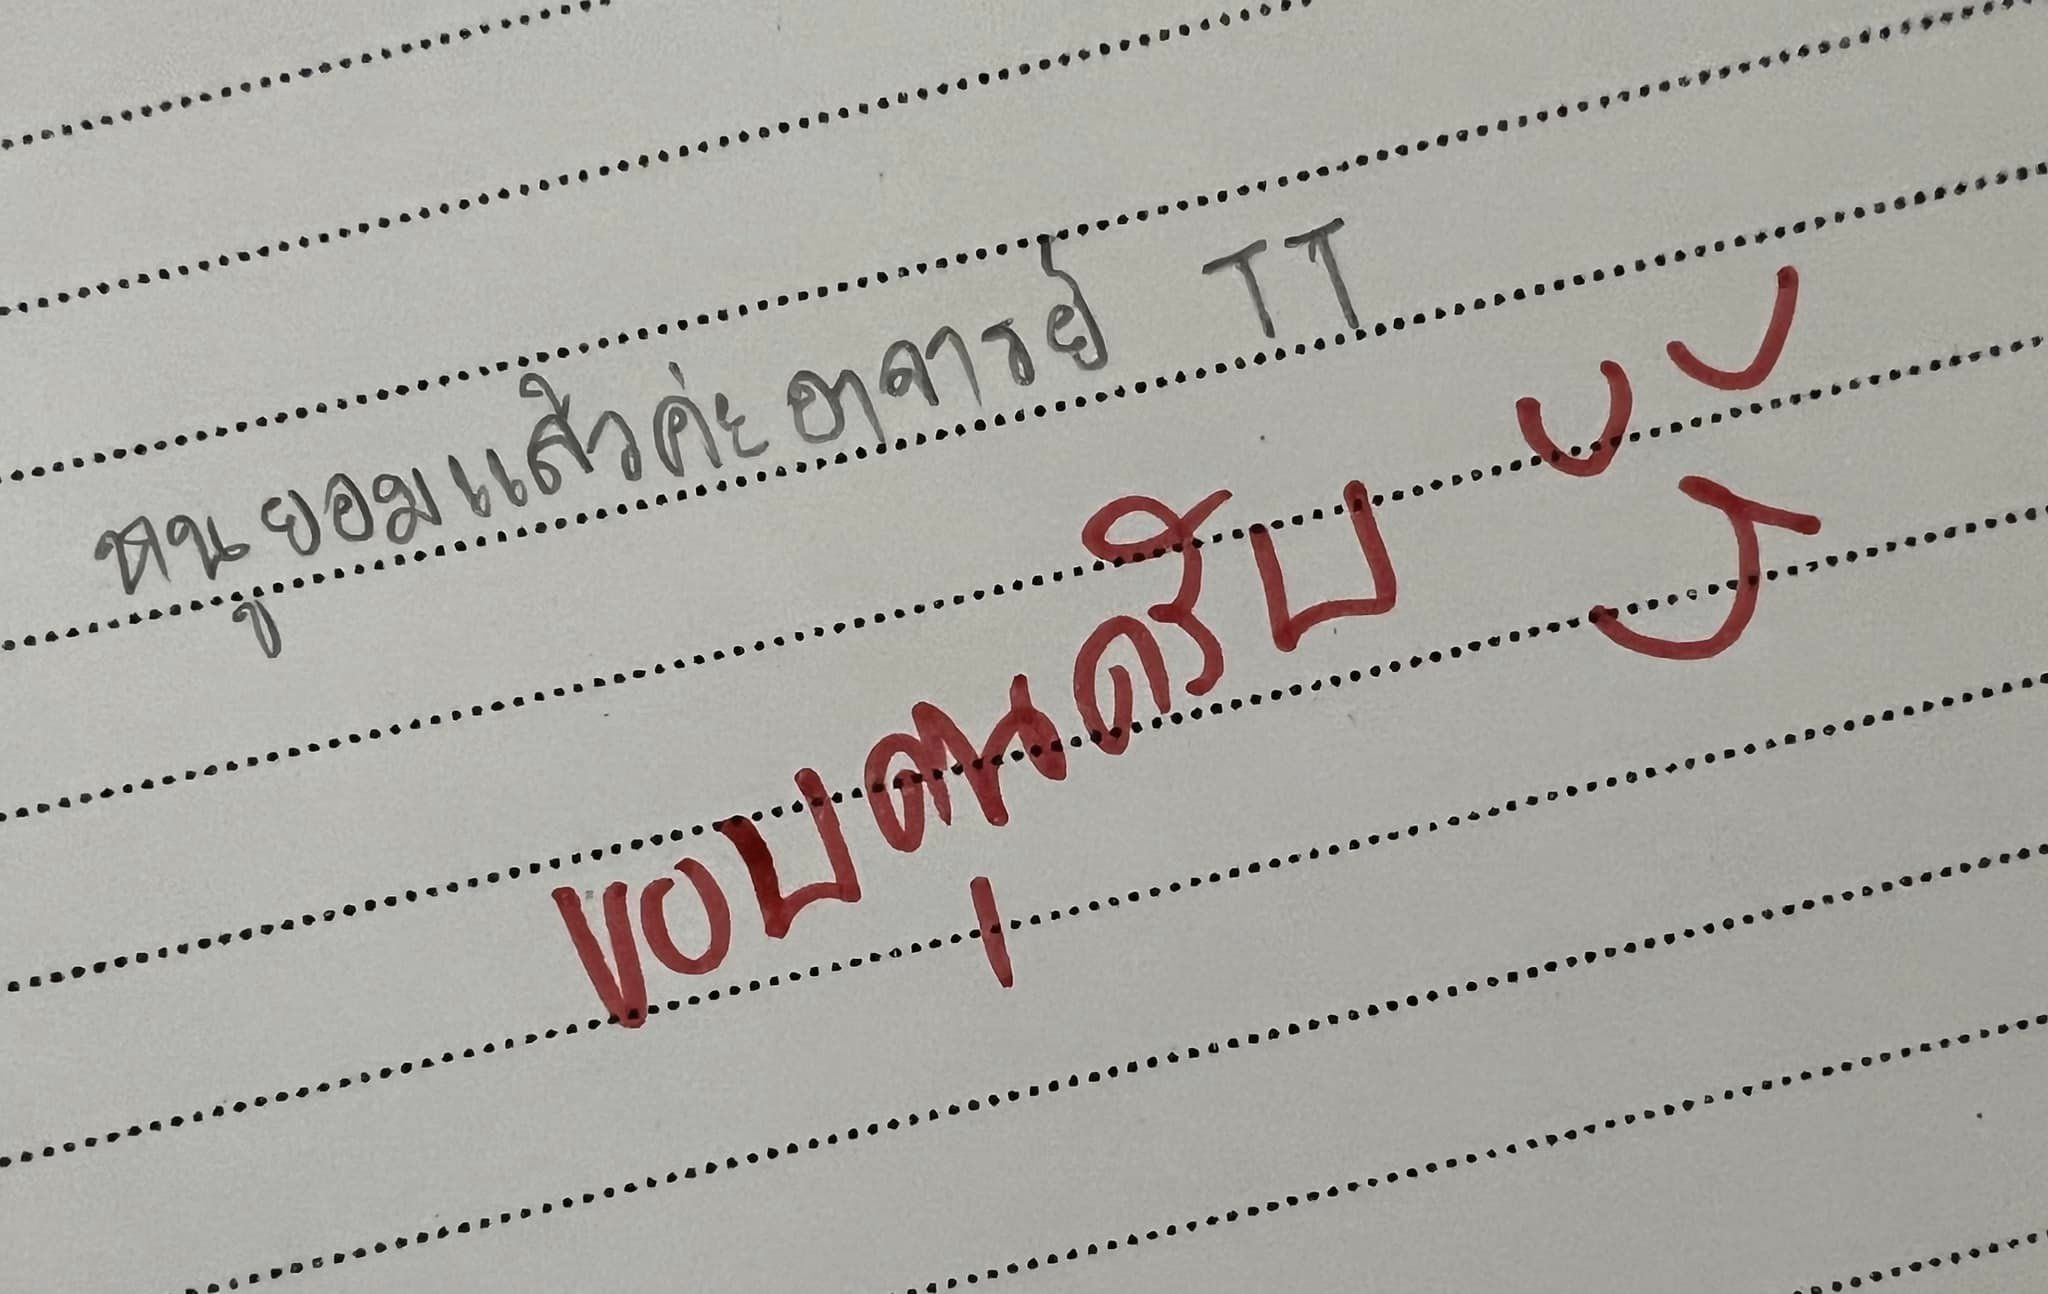 หนูยอมแล้วค่ะอาจารย์ TT
ขอบคุณครับ